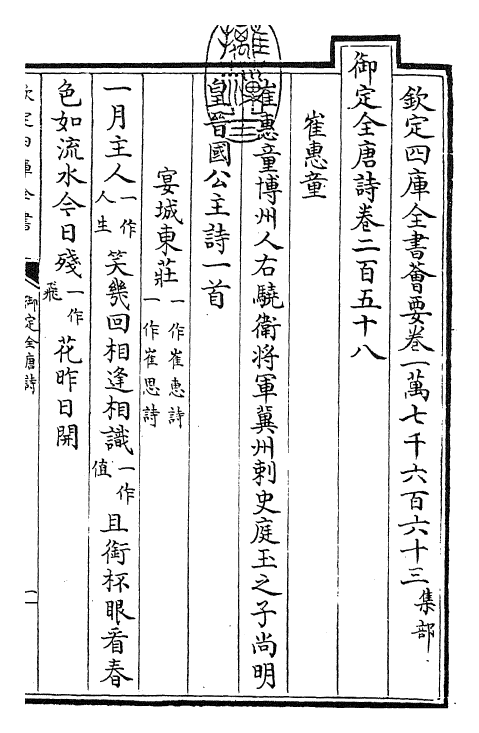 欽定四庫全書薈要卷一萬七千六百六十三集部
御定全唐詩卷二百五十八
崔惠童
崔惠童博州人右驍衛將軍冀州刺史庭玉之子尚明
皇晉國公主詩一首
宴城東莊一作崔惠詩一作崔思詩
一月主人一作人生笑幾回相逢相識一作值且銜杯眼看春
色如流水今日殘一作飛花昨日開
欽定四庫全書
御定全唐詩
一